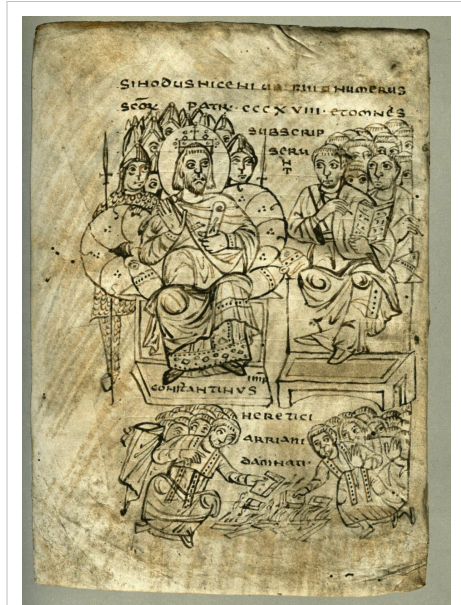 SINODUS NICENI NUMERUS
SCOR PATR CCCXVIII ET OMNES
SUBSCRIP
SERU
NT
CONSTANTINUS IMP
HERETICI
ARRIANI
DAMNATI